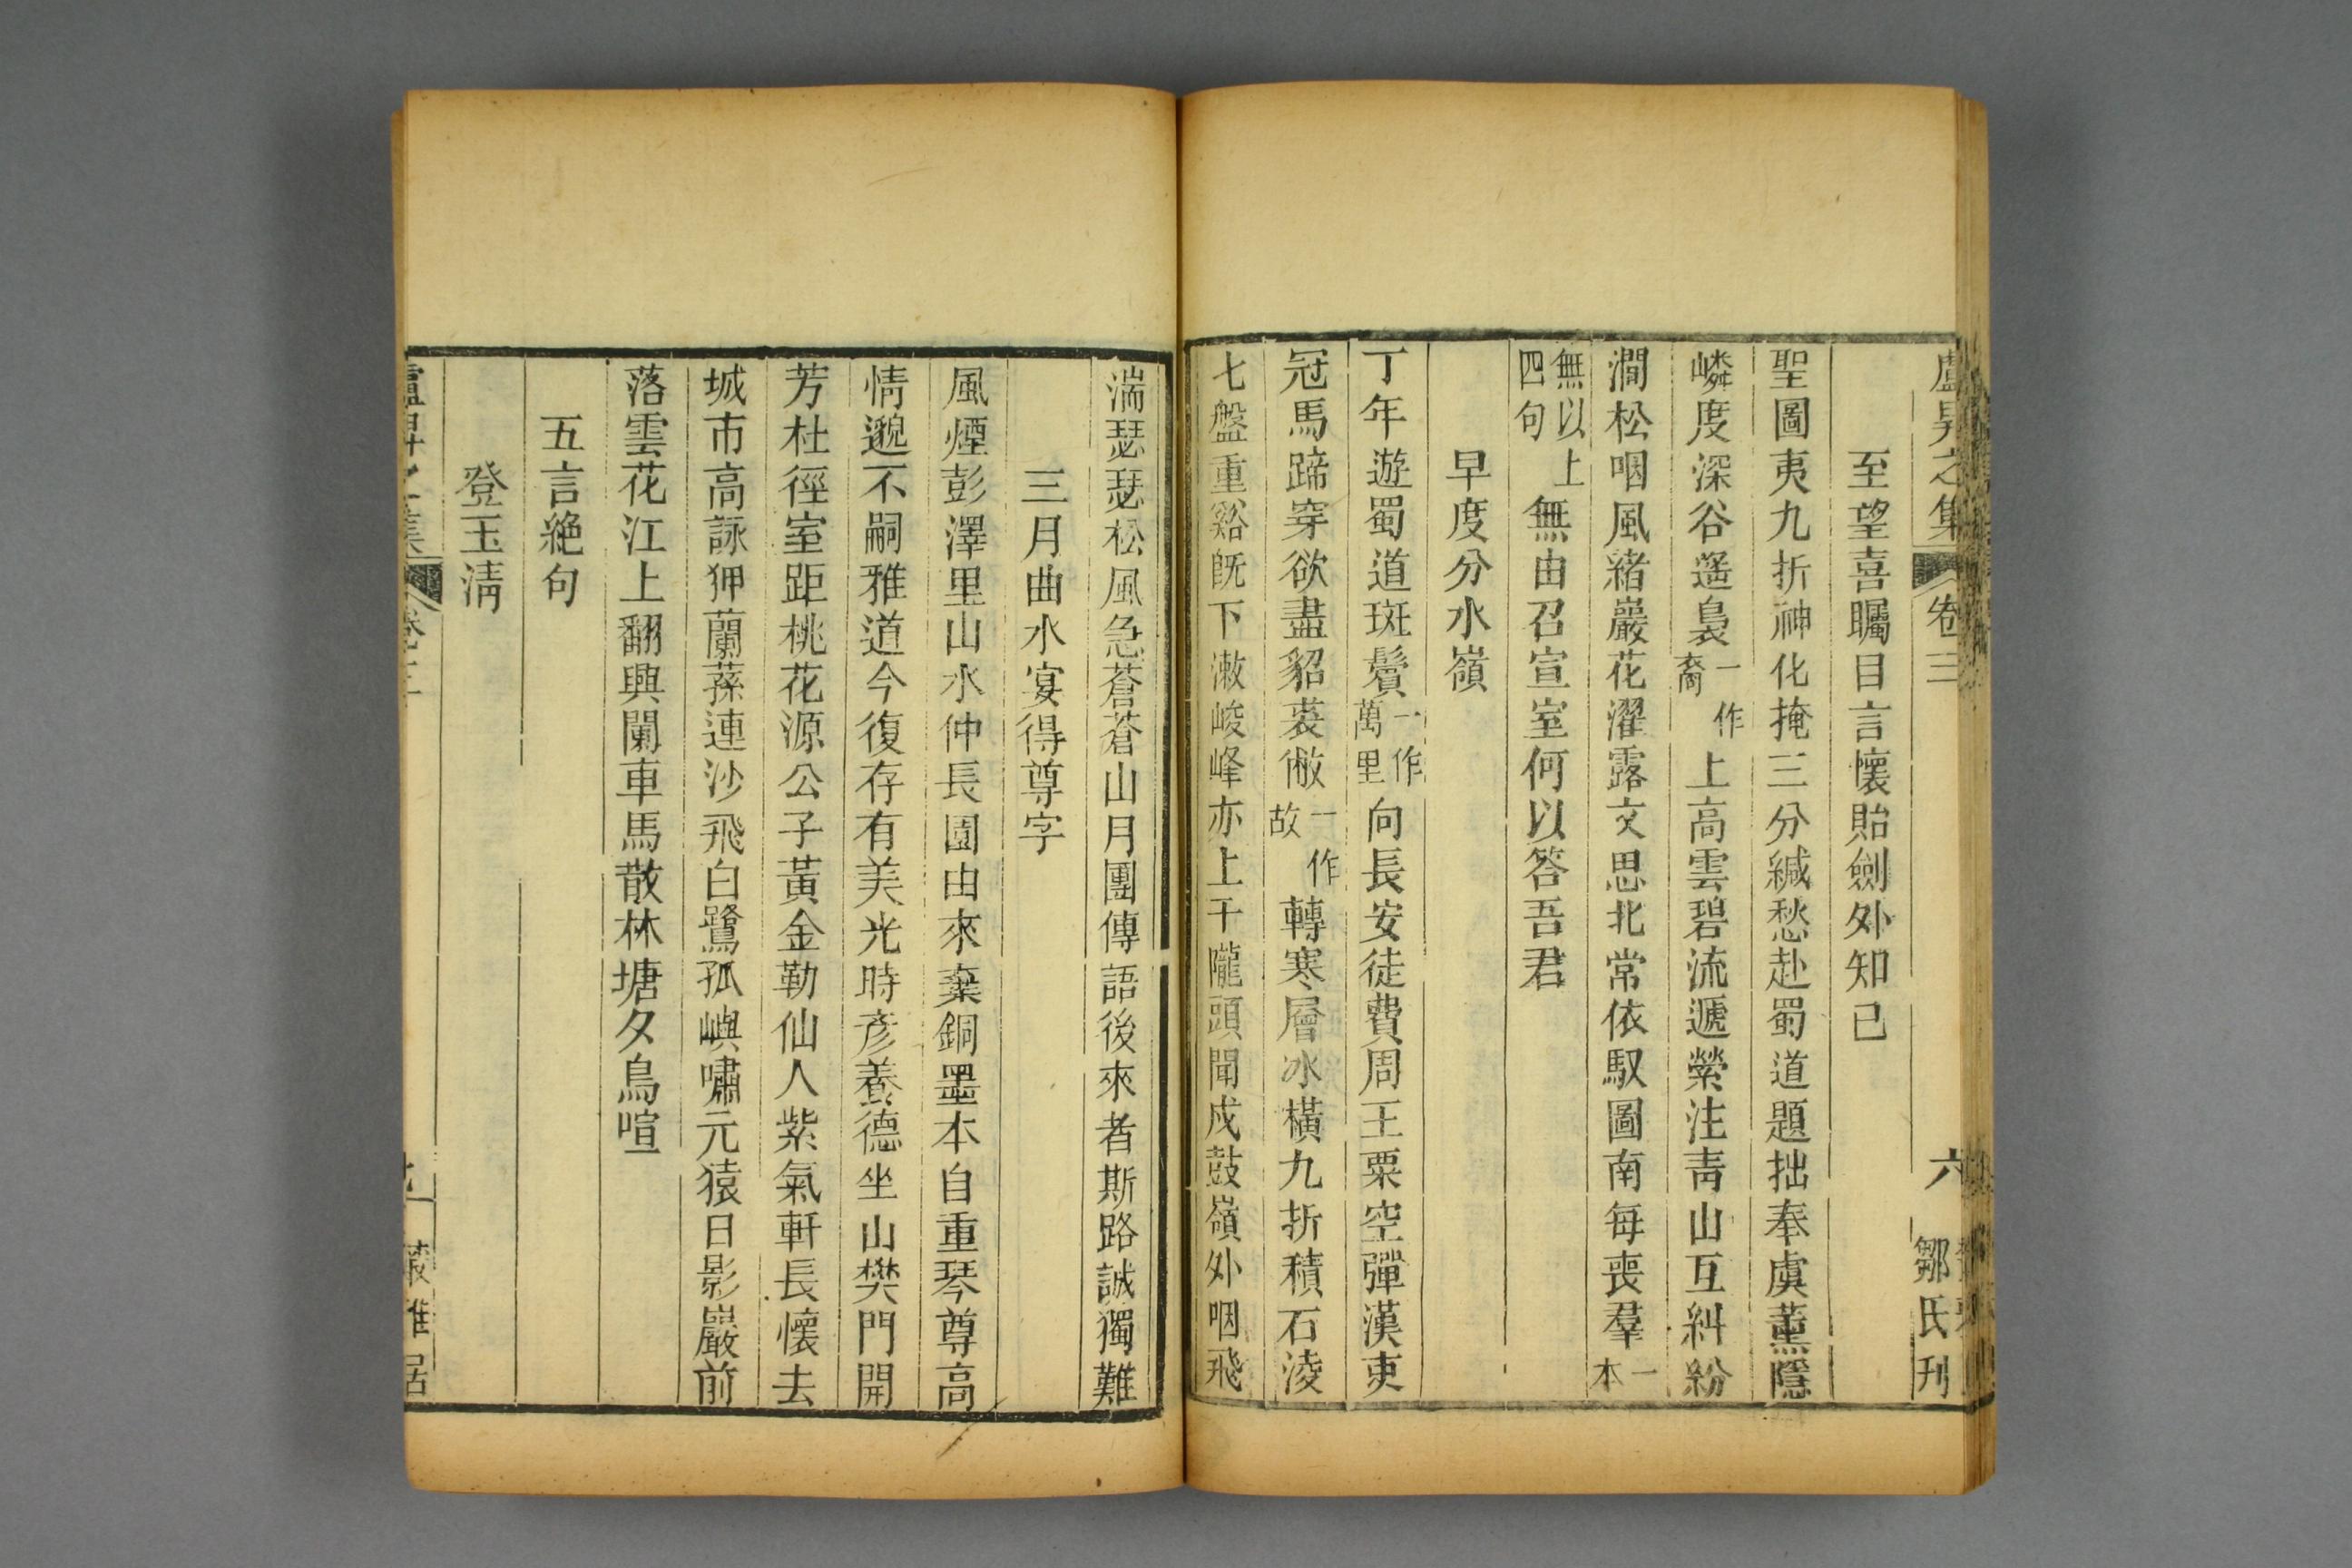 盧昇之集 卷三 六 鄒氏刊
至望喜矚目言懷貽劍外知己
聖圖夷九折神化掩三分緘愁赴蜀道題拙奉虞薰隱
嶙度深谷遥裊一作裔上高雲碧流遞縈注青山互糾紛
澗松咽風緒巖花濯露文思北常依馭圖南每喪羣一本
無以上四句無由召宣室何以答吾君
早度分水嶺
丁年遊蜀道斑鬢一作萬里向長安徒費周王粟空彈漢吏
冠馬蹄穿欲盡貂裘敝一作故轉寒層冰橫九折積石淩
七盤重谿既下漱峻峰亦上干隴頭聞戍鼓嶺外咽飛
湍瑟瑟松風急蒼蒼山月團傳語後來者斯路誠獨難
三月曲水宴得尊字
風煙彭澤里山水仲長園由來棄銅墨本自重琴尊高
情邈不嗣雅道今復存有美光時彥養德坐山樊門開
芳杜徑室距桃花源公子黃金勒仙人紫氣軒長懷去
城市高詠狎蘭蓀連沙飛白鷺孤嶼嘯元猿日影巖前
落雲花江上翻興闌車馬散林塘夕鳥喧
五言絶句
登玉清